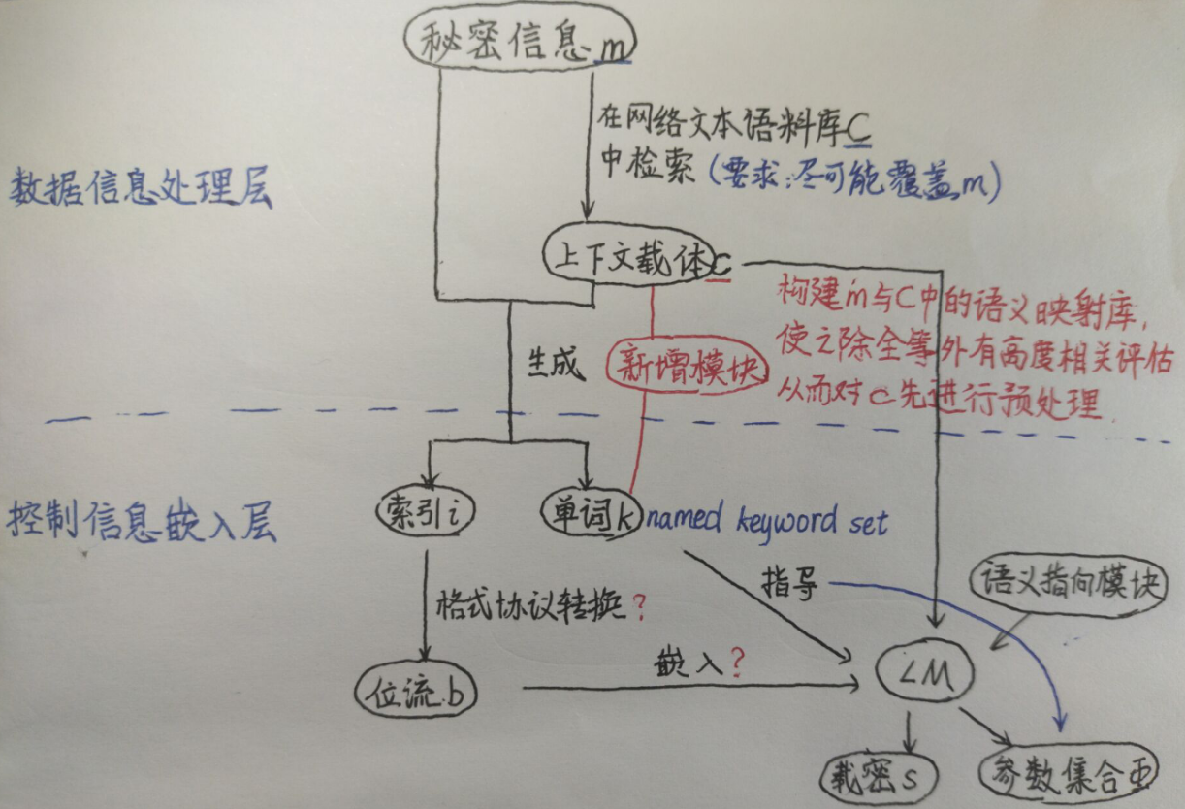 秘密信息m
在网络文本语料库C
中检索(要求:尽可能覆盖m)
数据信息处理层
上下文载体c
构建m与C中的语义映射库,
使之除全等外有高度相关评估
从而对c先进行预处理.
生成
新增模块
控制信息嵌入层
索引i
单词k named keyword set
指导
语义指向模块
格式协议转换?
嵌入?
LM
位流.b
载密s
参数集合Φ